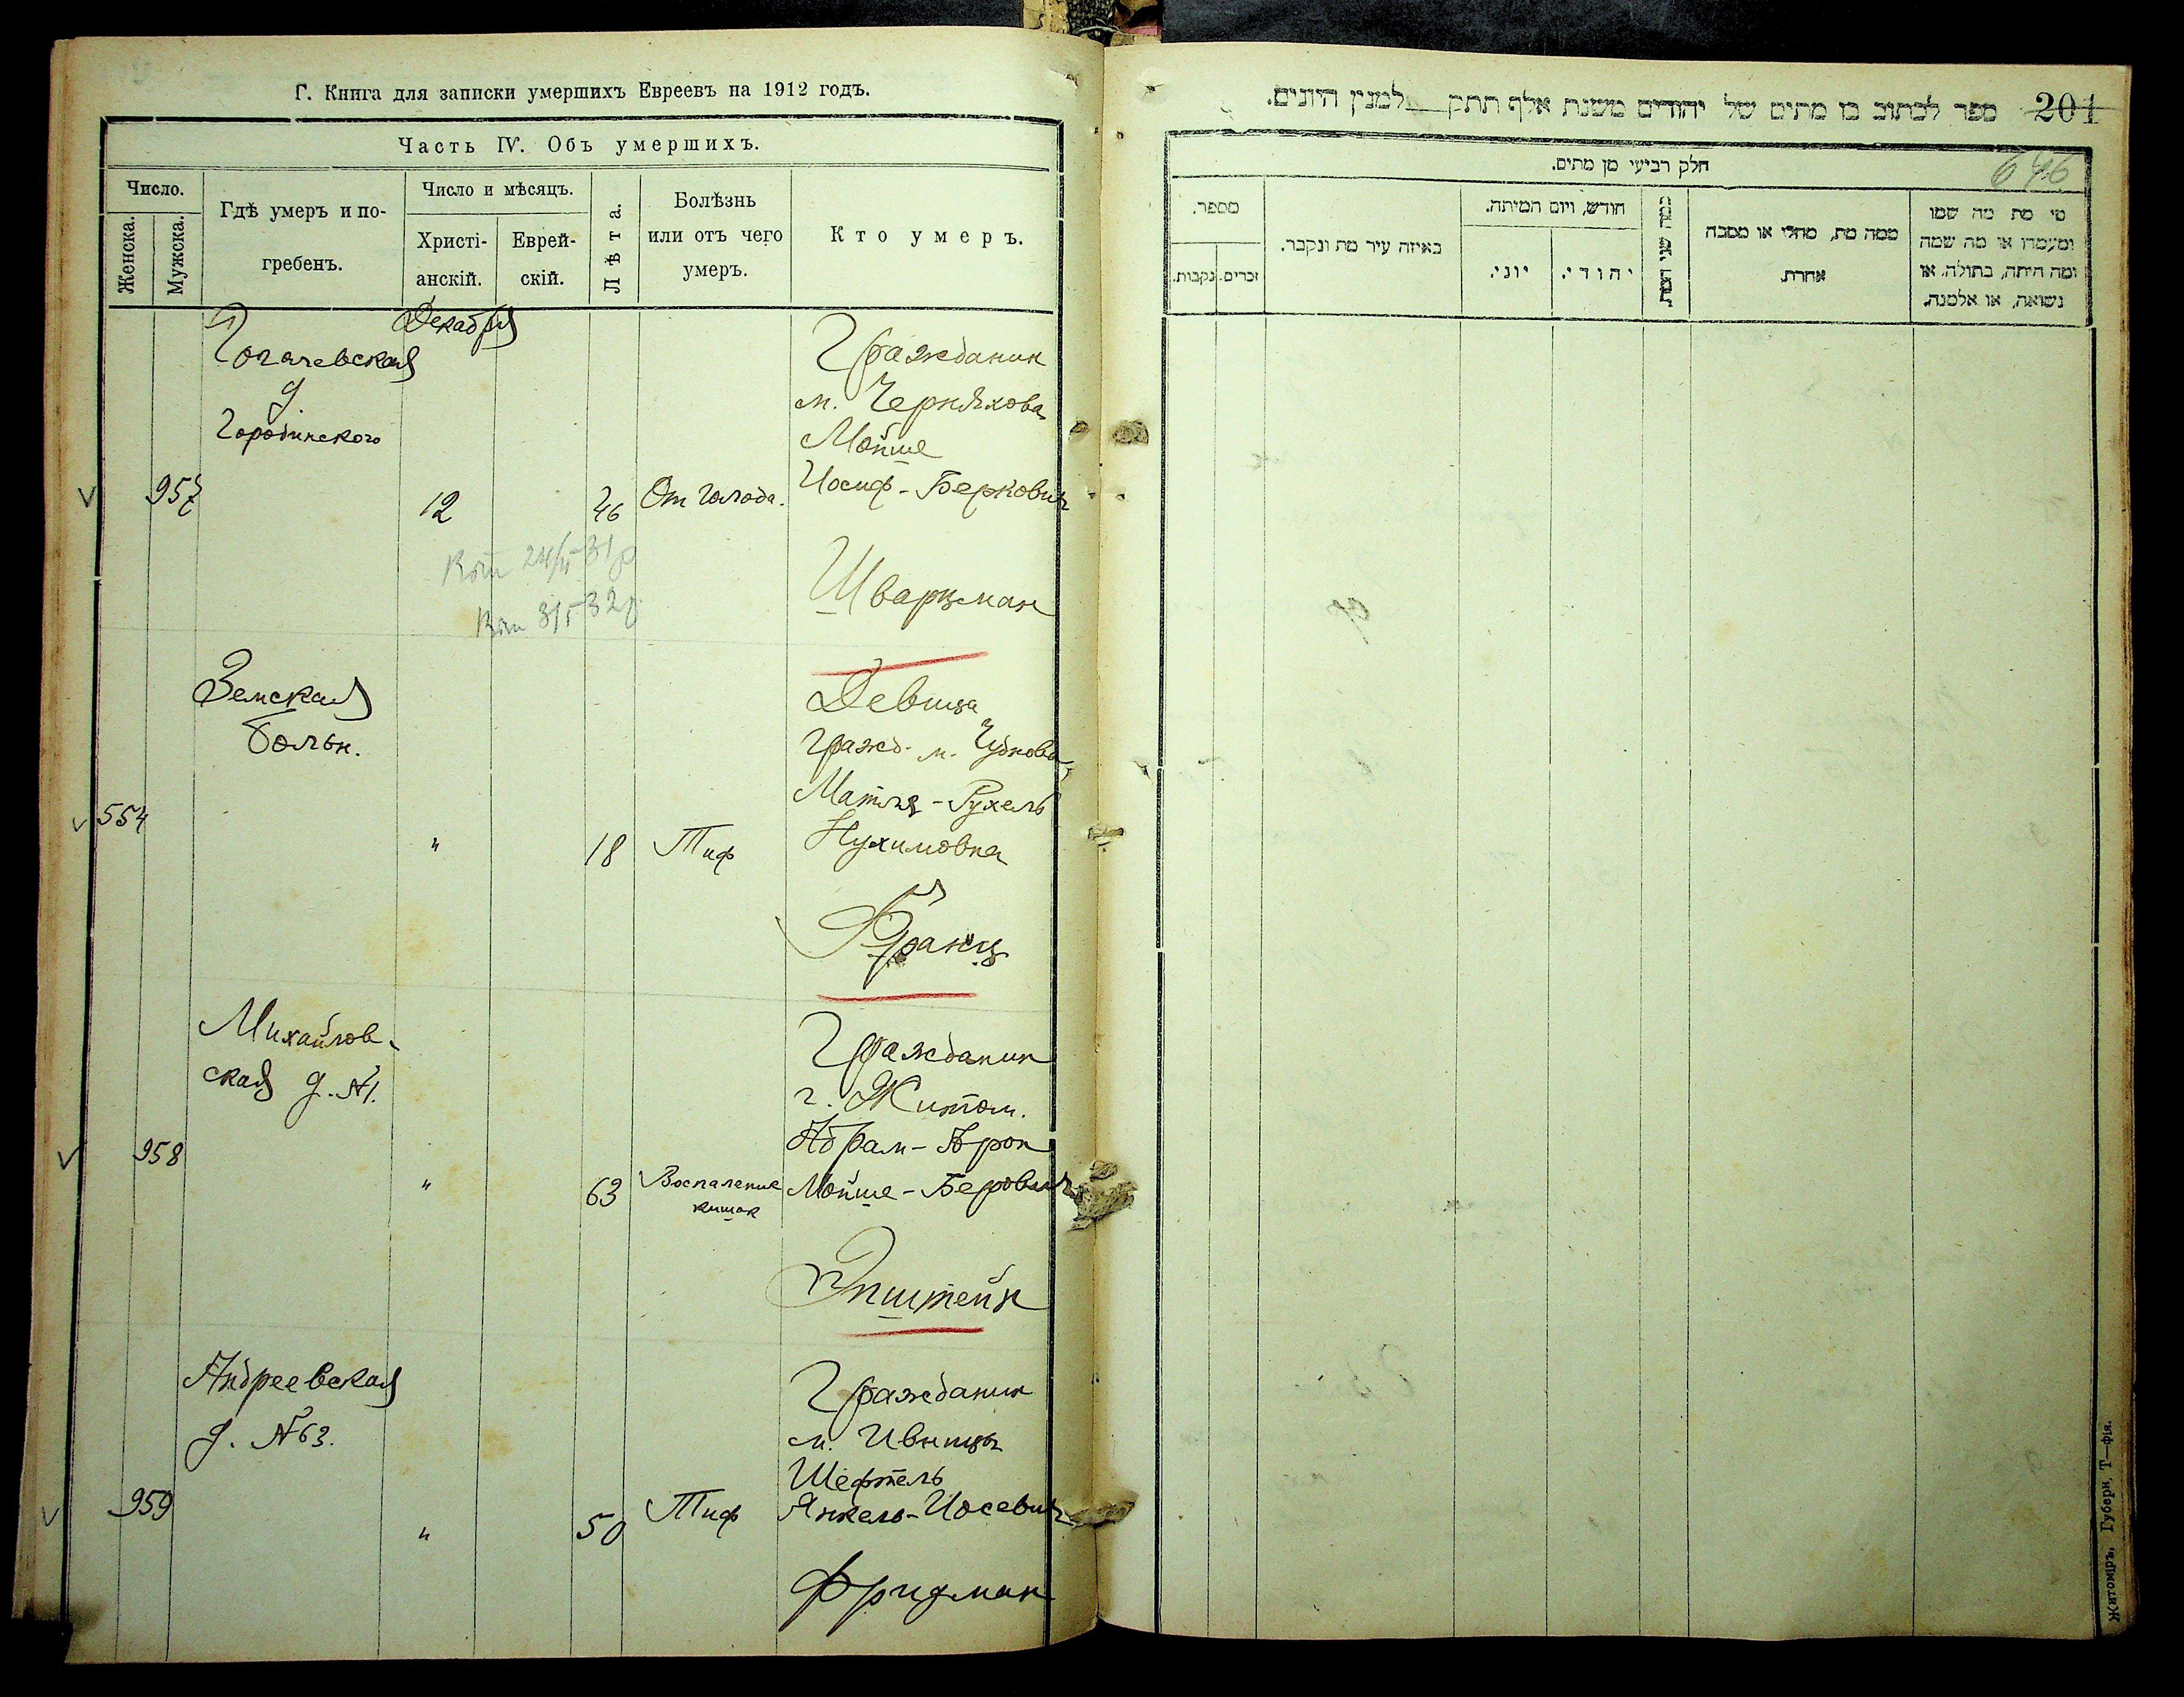 Г. Книга для записки умершихъ Евреевъ на 1912 годъ.
Часть IV. Объ умершихъ.
Число.
Женска.
Мужска.
Гдѣ умеръ и по-
гребенъ.
Число и мѣсяцъ.
Христі-
анскій.
Еврей-
скій.
Лѣта.
Болѣзнь
или отъ чего
умеръ.
Кто умеръ.
Декабря
Рогачевская
д.
Городинского
957
12
46
От голода.
Гражданин
м. Черняхова
Мойше
Иосиф-Беркович
Шварцман
Коп 24/II-31 р
Коп 3/5-32 г.
Земская
больн.
554
"
18
Тиф
Девица
гражд. м. Чуднова
Матля-Рухель
Нухимовна
Франц
Михайлов-
ская д. №1.
958
"
63
Воспаление
кишок
Гражданин
г. Житом.
Абрам-Арон
Мойше-Берович
Эпштейн
Андреевская
д. №63.
959
"
50
Тиф
Гражданин
м. Ивницы
Шефтель
Янкель-Иосевич
Фридман
ספר לכתוב בו מתים של יהודים משנת אלף תתק למנין היונים.
201
646
חלק רביעי מן מתים.
מי מת מה שמו
ומעמדו או מה שמה
ומה היתה, בתולה, או
נשואה, או אלמנה.
ממה מת, מחלי או מסבה
אחרת.
כמה שני המת.
חודש, ויום המיתה.
יהודי.
יוני.
באיזה עיר מת ונקבר.
מספר.
זכרים.
נקבות.
Житоміръ, Губерн. Т—фія.